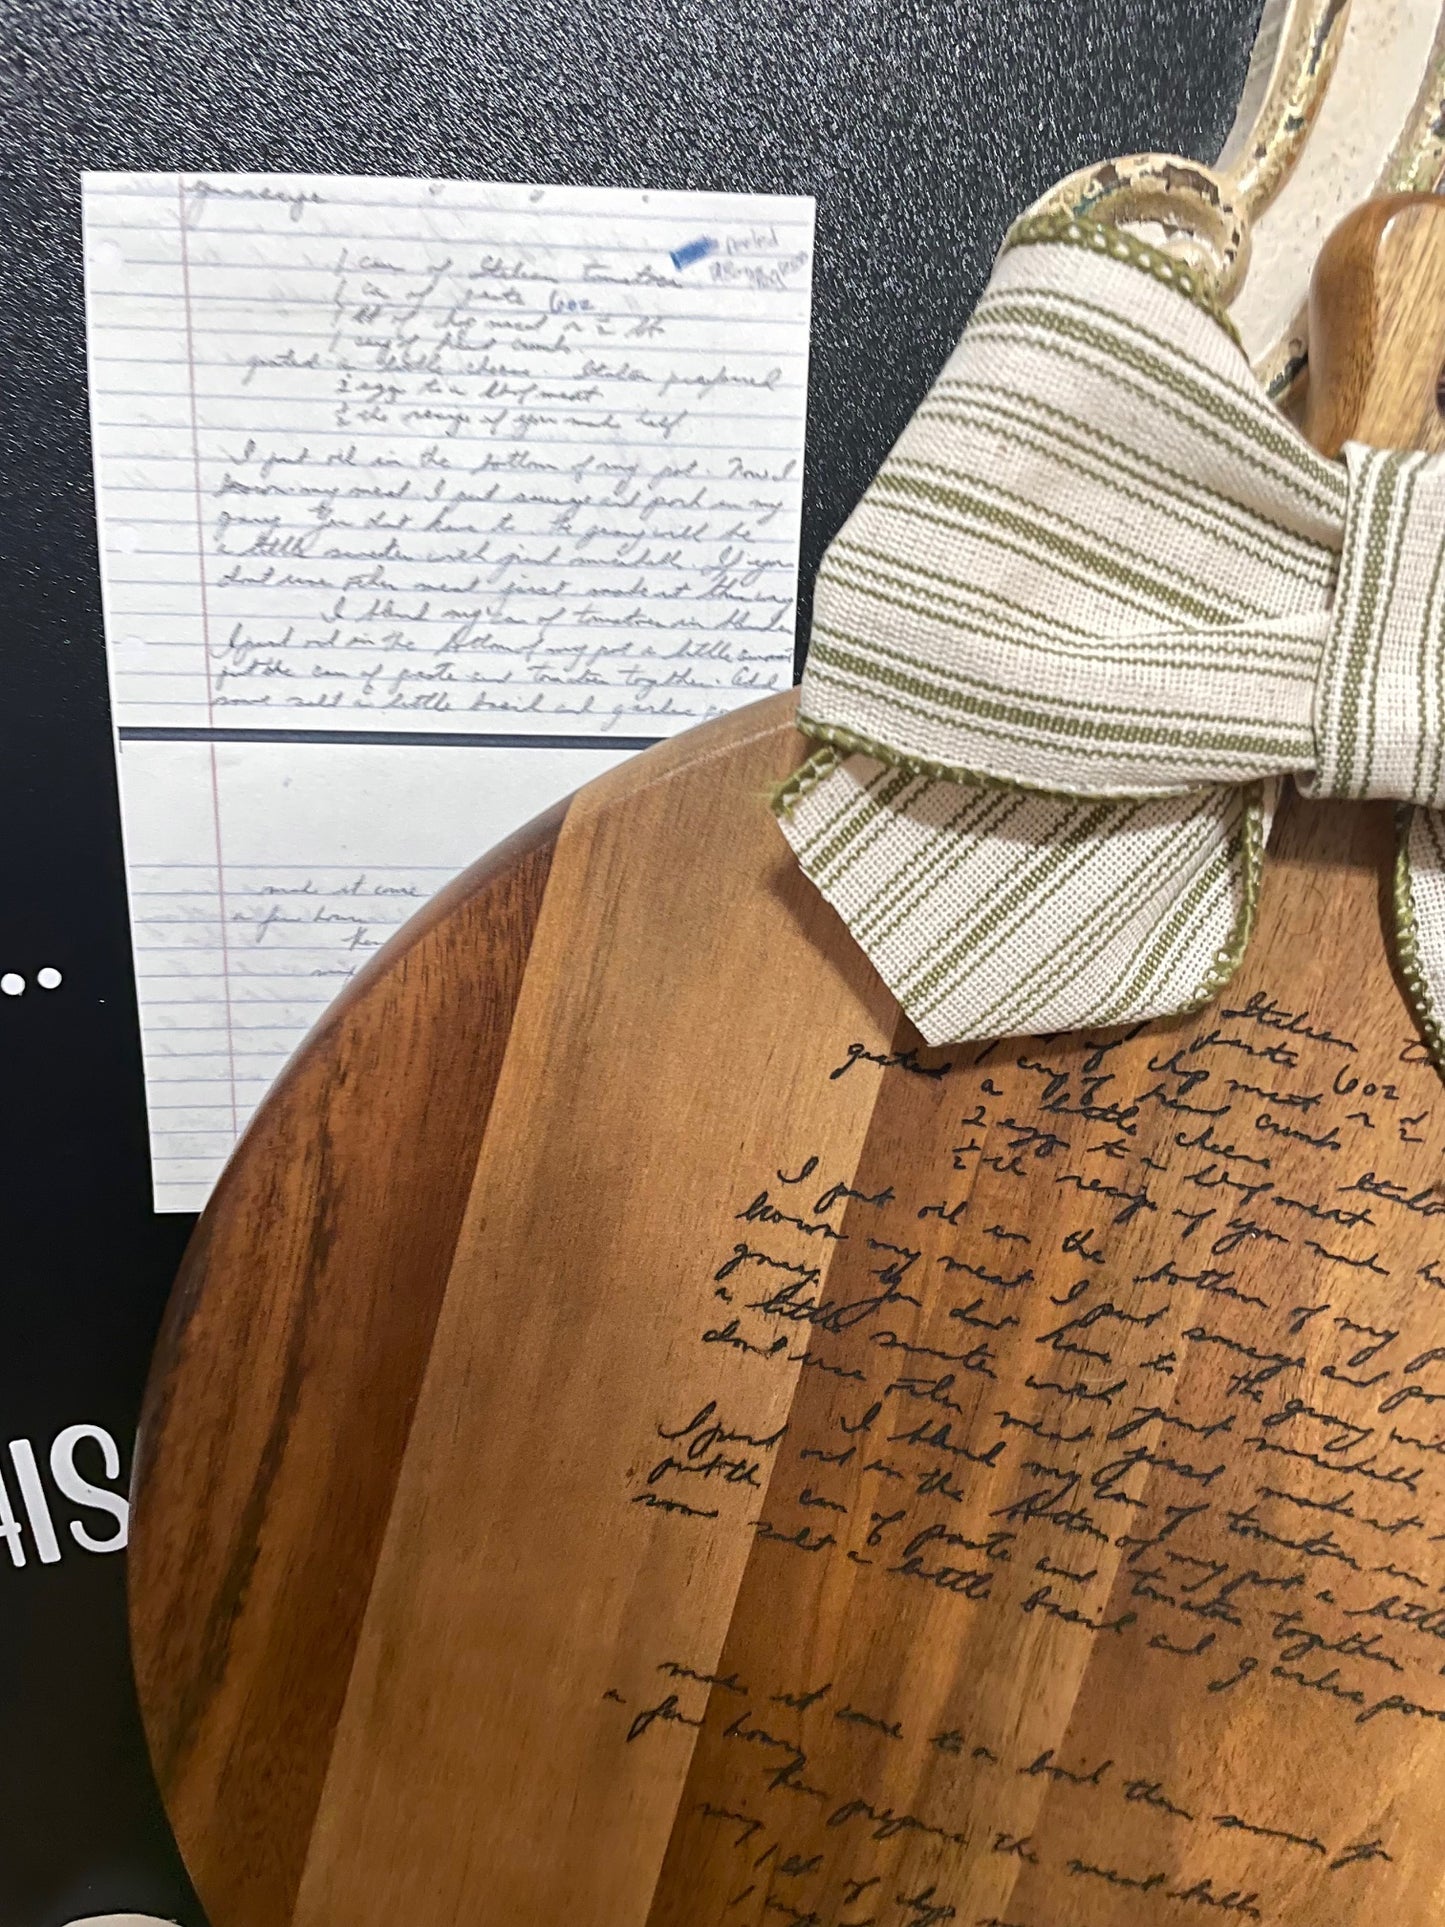 1 can of Italian tomatoes
peeled
1 can of paste 6oz
1 lb of chop meat or ½ lb
1 cup of bread crumbs
grated a little cheese. Italian preferred
2 egg to a lb of meat
½ the recipe if you make half
I put oil in the bottom of my pot. Now I
brown my meat I put sausage and pork in my
gravy. You dont have to the gravy will be
a little sweeter with just meatballs. If you
dont use other meat just make it this way
I blend my can of tomatoes in blender
I put oil in the bottom of my pot a little
put the can of paste and tomatoes together. Add
some salt a little basil and garlic
make it come
a few hours
then
mix
..
HIS
Italian
paste 6oz
of chop meat or ½
cup of bread crumbs
grated a little cheese Italian
2 egg to a lb of meat
½ the recipe if you make
I put oil in the bottom of my
brown my meat I put sausage and
gravy. You dont have to the gravy will
a little sweeter with just meatballs
dont use other meat just make it
I blend my can of tomatoes in
I put oil in the bottom of my pot a little
put the can of paste and tomatoes together
some salt a little basil and garlic
make it come to a boil then simmer for
a few hours
then prepare the meat balls
1 lb of chop
1 cup